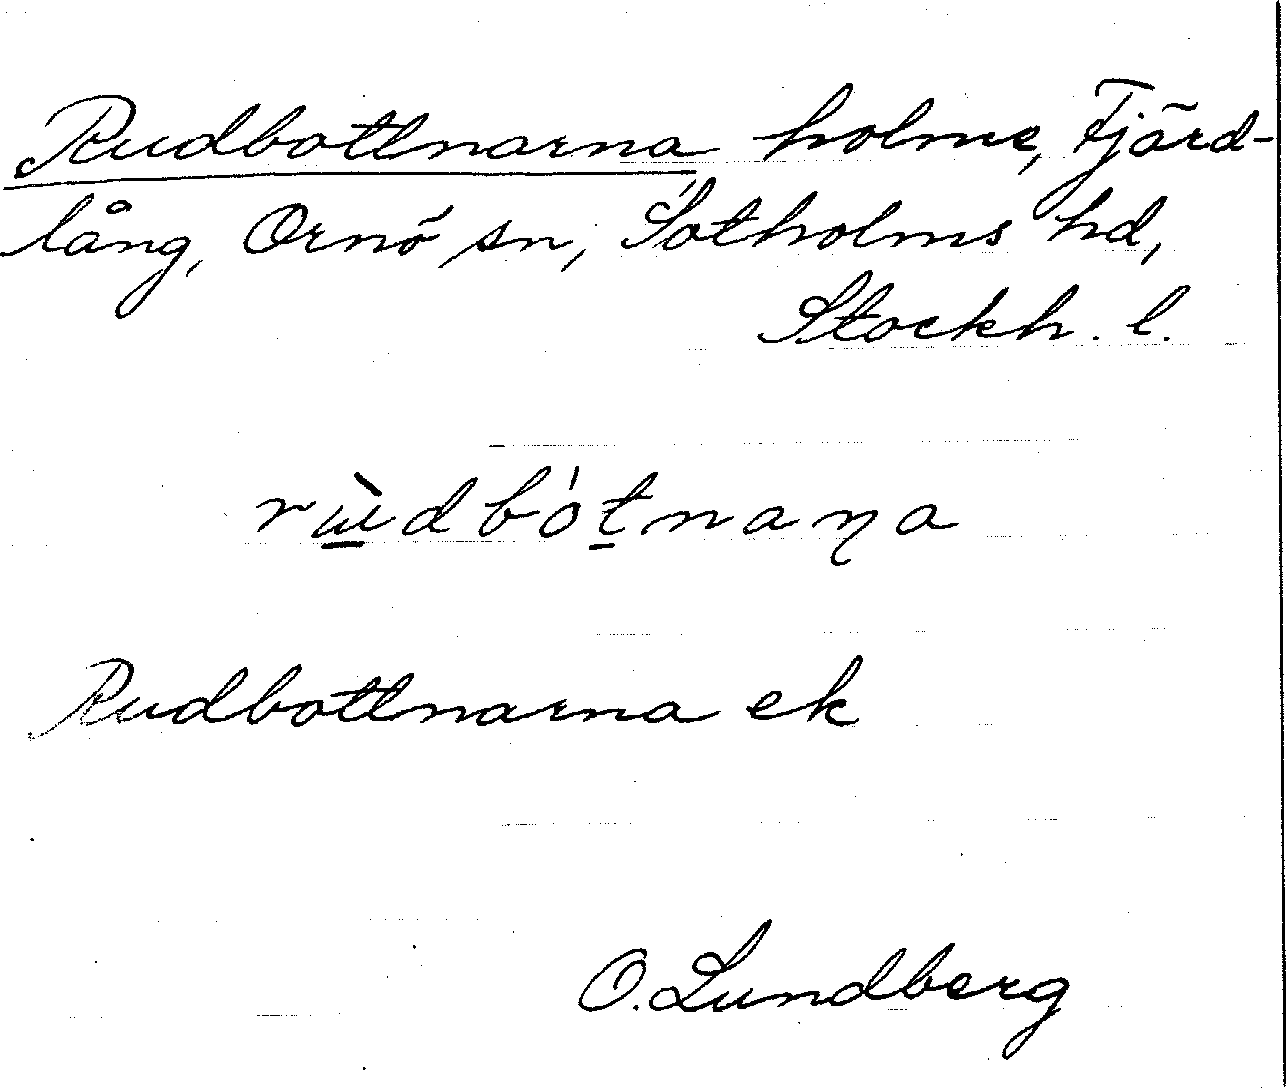 Rudbottnarna holme, Fjärd-
lång, Ornö sn, Sotholms hd,
Stockh. l.
rɯ̀dbótnaɳa
Rudbottnarna ek
O. Lundberg